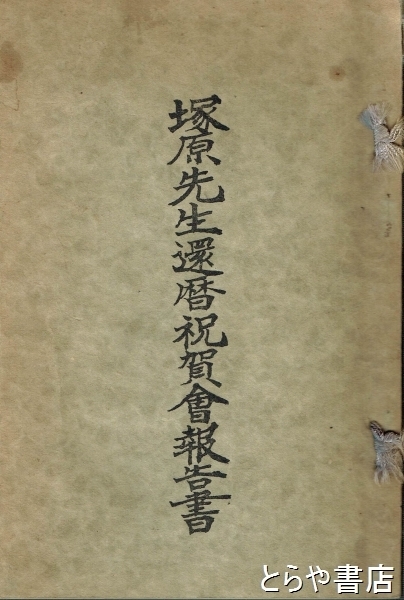 塚原先生還暦祝賀會報告書
とらや書店